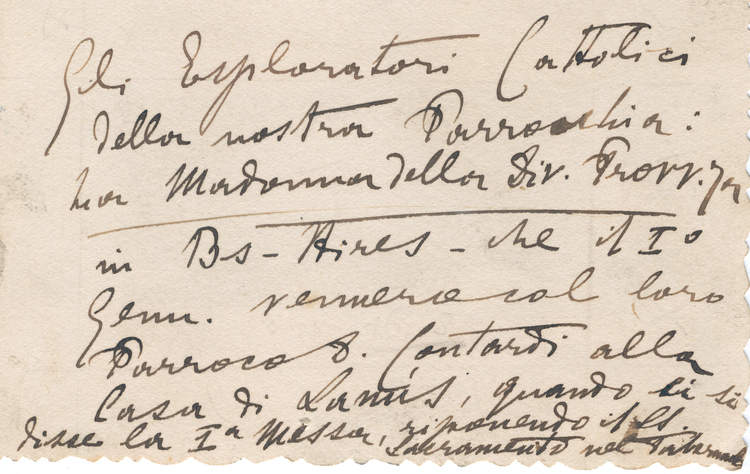 Gli Esploratori Cattolici
della nostra Parrocchia:
La Madonna della Div. Provv.za
in Bs-Aires - che il Iº
Genn. vennero col loro
Parroco D. Contardi alla
Casa di Lanús, quando ci si
disse la Iª Messa, riponendo il SS.
Sacramento nel Tabernacolo